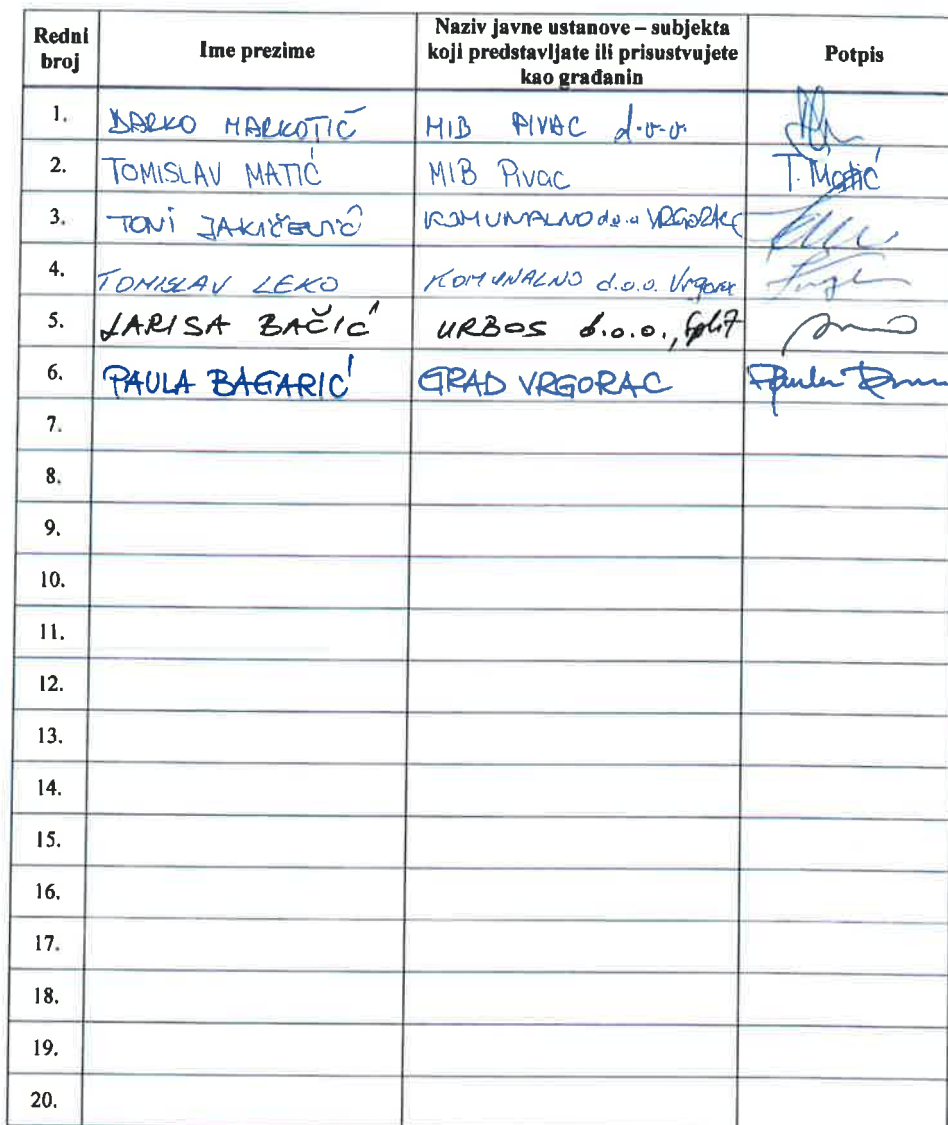 Redni broj Ime prezime Naziv javne ustanove – subjekta koji predstavljate ili prisustvujete kao građanin Potpis
1. DARKO MARKOTIĆ MIB PIVAC d.o.o.
2. TOMISLAV MATIĆ MIB Pivac T. Matić
3. TONI JAKIČEVIĆ KOMUNALNO d.o.o VRGORAC
4. TOMISLAV LEKO KOMUNALNO d.o.o. Vrgorac
5. LARISA BAČIĆ URBOS d.o.o., Split
6. PAULA BAGARIĆ GRAD VRGORAC Paula
7.
8.
9.
10.
11.
12.
13.
14.
15.
16.
17.
18.
19.
20.